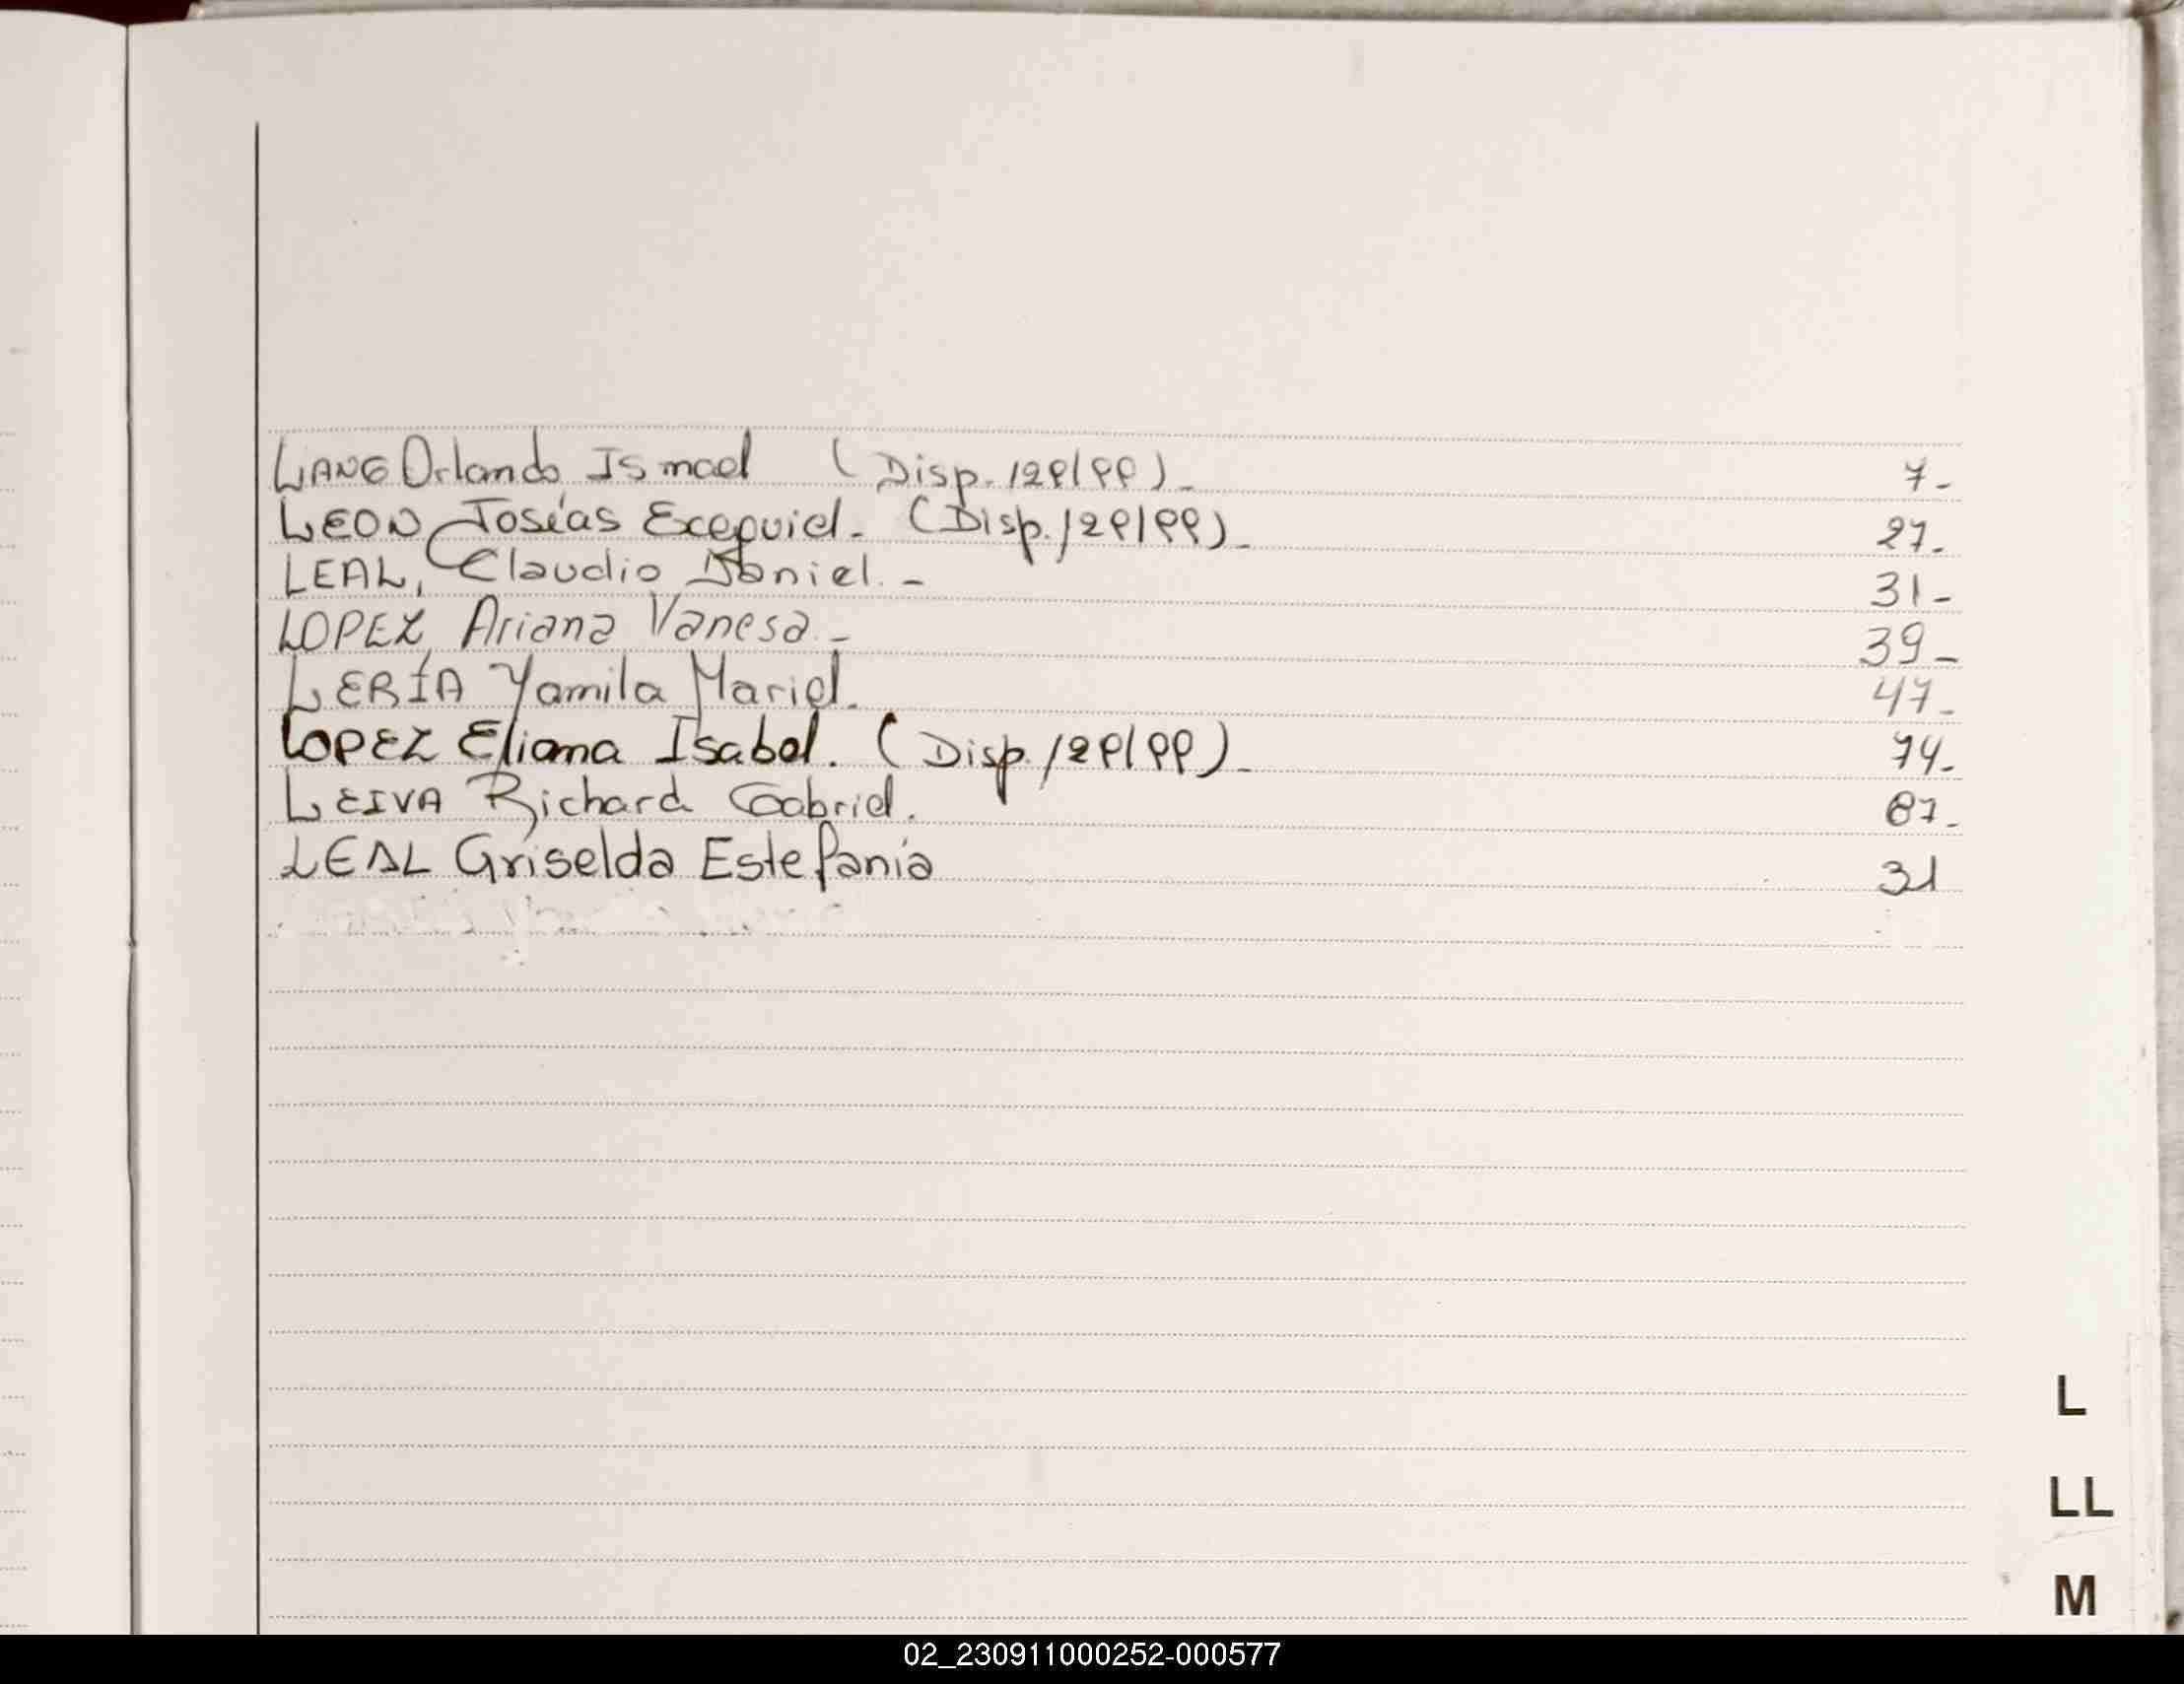 LANG Orlando Ismael (Disp. 129/99)_ 7-
LEON Josías Exequiel. (Disp. 129/99)_ 27-
LEAL, Claudio Daniel. - 31-
LOPEZ Ariana Vanesa. - 39-
LERÍA Yamila Mariel. 47-
LOPEZ Eliana Isabel. (Disp. 129/99)_ 74-
LEIVA Richard Gabriel. 87-
LEAL Griselda Estefanía 31
L
LL
M
02_230911000252-000577